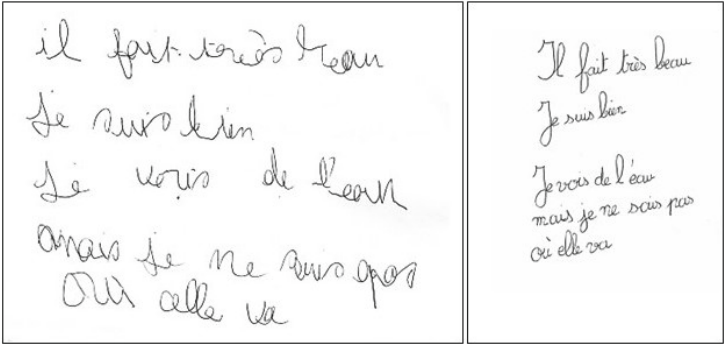 il fait très beau
je suis bien
je vois de l'eau
mais je ne suis pas
où elle va
Il fait très beau
Je suis bien
Je vois de l'éau
mais je ne sais pas
où elle va